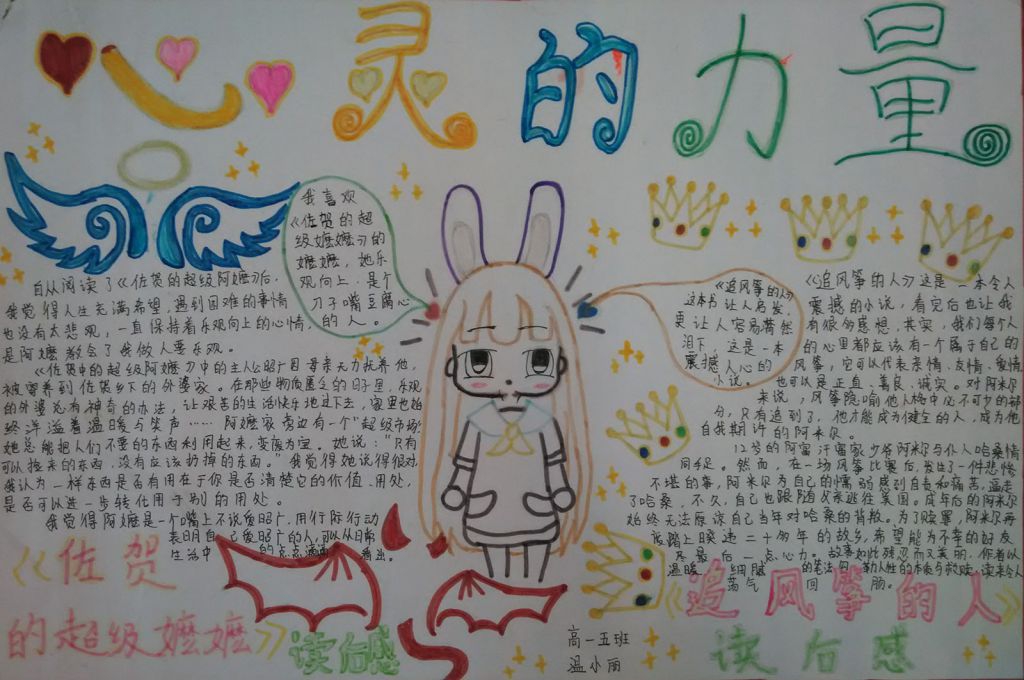 心灵的力量
我喜欢
《佐贺的超
级嬷嬷》的
嬷嬷，她乐
观向上，是个
刀子嘴豆腐心
的人。
自从阅读了《佐贺的超级阿嬷》后，
我觉得人生充满希望，遇到困难的事情
也没有太悲观，一直保持着乐观向上的心情，
是阿嬷教会了我做人要乐观。
《佐贺的超级阿嬷》中的主人公昭广因母亲无力抚养他，
被寄养到佐贺乡下的外婆家。在那些物质匮乏的日子里，乐观
的外婆总有神奇的办法，让艰苦的生活快乐地过下去，家里也始
终洋溢着温暖与笑声……阿嬷家旁边有一个"超级市场"
她总能把人们不要的东西利用起来，变废为宝。她说："只有
可以捡来的东西，没有应该扔掉的东西。"我觉得她说得很对，
我认为一样东西是否有用在于你是否清楚它的价值、用处，
是否可以进一步转化用于别的用处。
我觉得阿嬷是一个嘴上不说爱昭广，用行际行动
表明自己爱昭广的人，可以从日常
生活中的点点滴滴看出。
《佐贺
的超级嬷嬷》
读后感
《追风筝的人》
这本书让人启发，
更让人容易潸然
泪下，这是一本
震撼人心的
小说。
《追风筝的人》这是一本令人
震撼的小说，看完后也让我
有很多感想。其实，我们每个人
的心里都应该有一个属于自己的
风筝，它可以代表亲情、友情、爱情
也可以是正直、善良、诚实。对阿米尔
来说，风筝隐喻他人格中必不可少的部
分，只有追到了，他才能成为健全的人，成为他
自我期许的阿米尔。
12岁的阿富汗富家少爷阿米尔与仆人哈桑情
同手足。然而，在一场风筝比赛后，发生了一件悲惨
不堪的事，阿米尔为自己的懦弱感到自责和痛苦，逼走
了哈桑，不久，自己也跟随父亲逃往美国。成年后的阿米尔
始终无法原谅自己当年对哈桑的背叛。为了赎罪，阿米尔再
度踏上暌违二十多年的故乡，希望能为不幸的好友
尽最后一点心力。故事如此残忍而又美丽，作者以
温暖细腻的笔法勾勒人性的本质与救赎，读来令人
荡气回肠。
《追风筝的人》
读后感
高一五班
温小丽